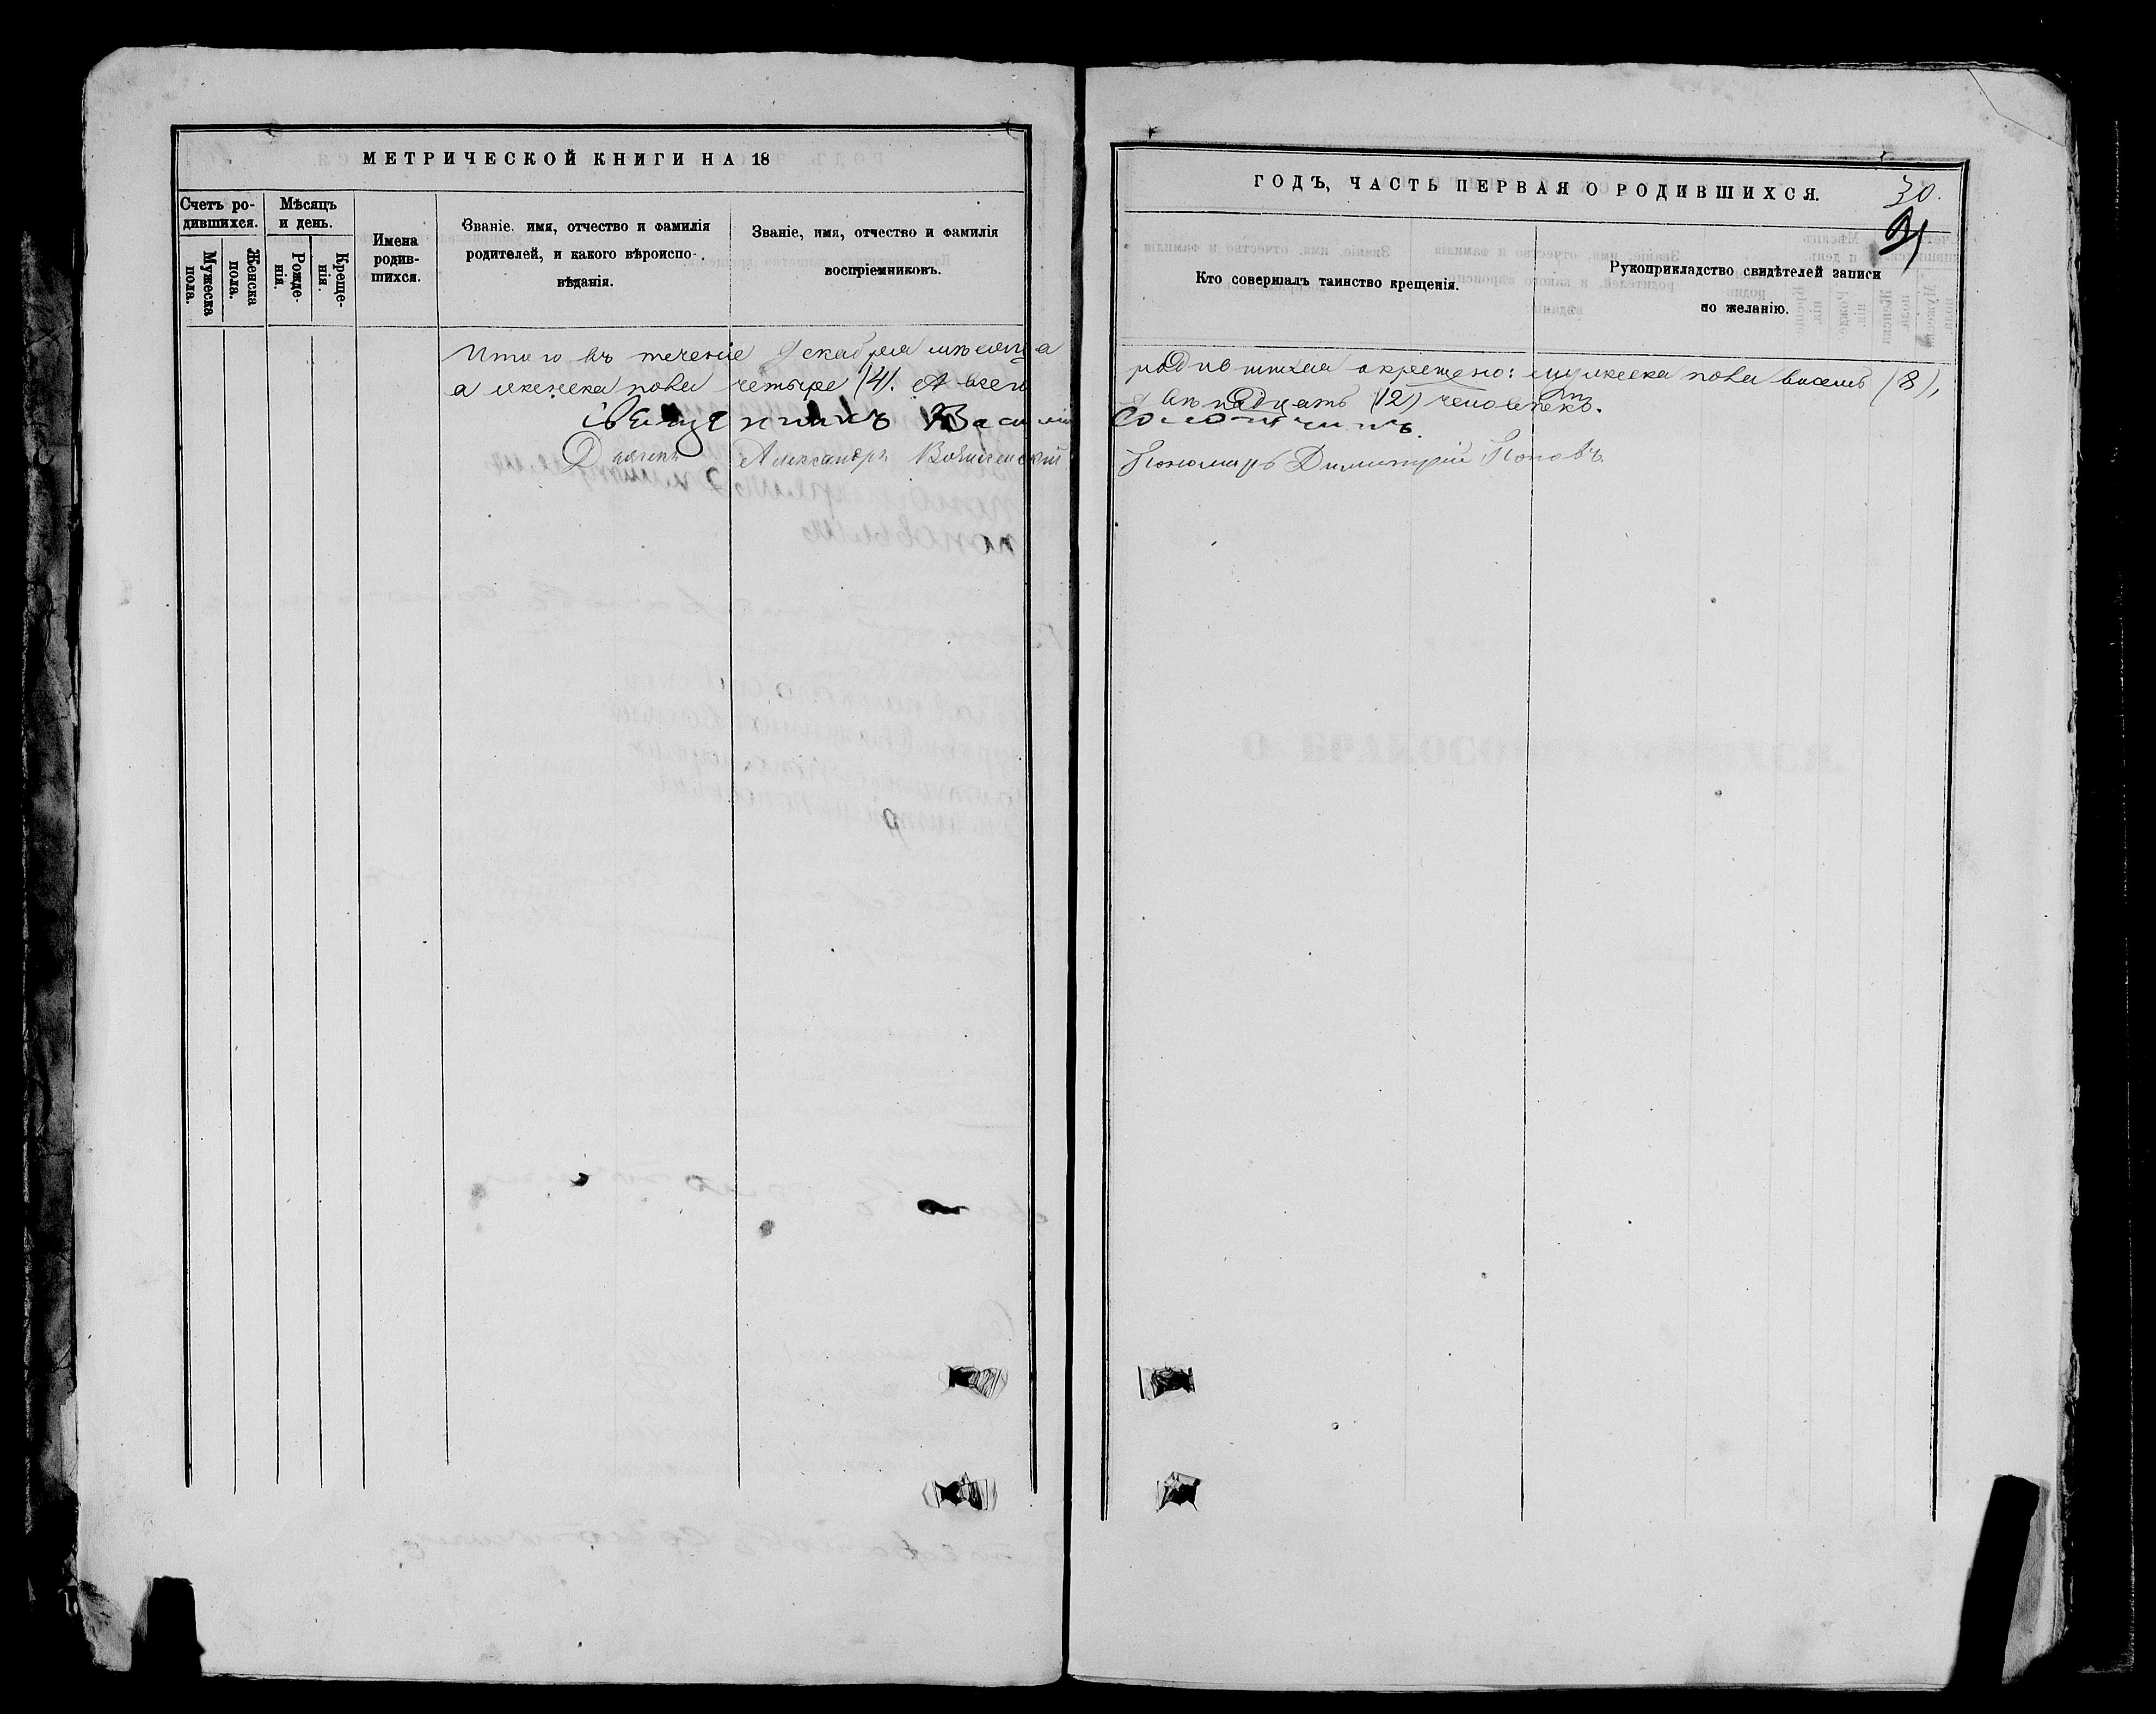 МЕТРИЧЕСКОЙ КНИГИ НА 18
Счетъ ро-
дившихся.
Мужеска
пола.
Женска
пола.
Мѣсяцъ
и день.
Рожде-
нія.
Креще-
нія.
Имена
родив-
шихся.
Званіе, имя, отчество и фамилія
родителей, и какого вѣроиспо-
вѣданія.
Званіе, имя, отчество и фамилія
воспріемниковъ.
Итого въ теченіе Декабря мѣсяца
а женска пола четыре (4). А всего
Священникъ Василій
Діаконъ Александръ
ГОДЪ, ЧАСТЬ ПЕРВАЯ О РОДИВШИХСЯ.
30.
31
Кто совершалъ таинство крещенія.
Рукоприкладство свидѣтелей записи
по желанію.
родившихся окрещено: мужеска пола восемь (8),
двѣнадцать (12) человѣкъ.
Пономарь Димитрій Поповъ.